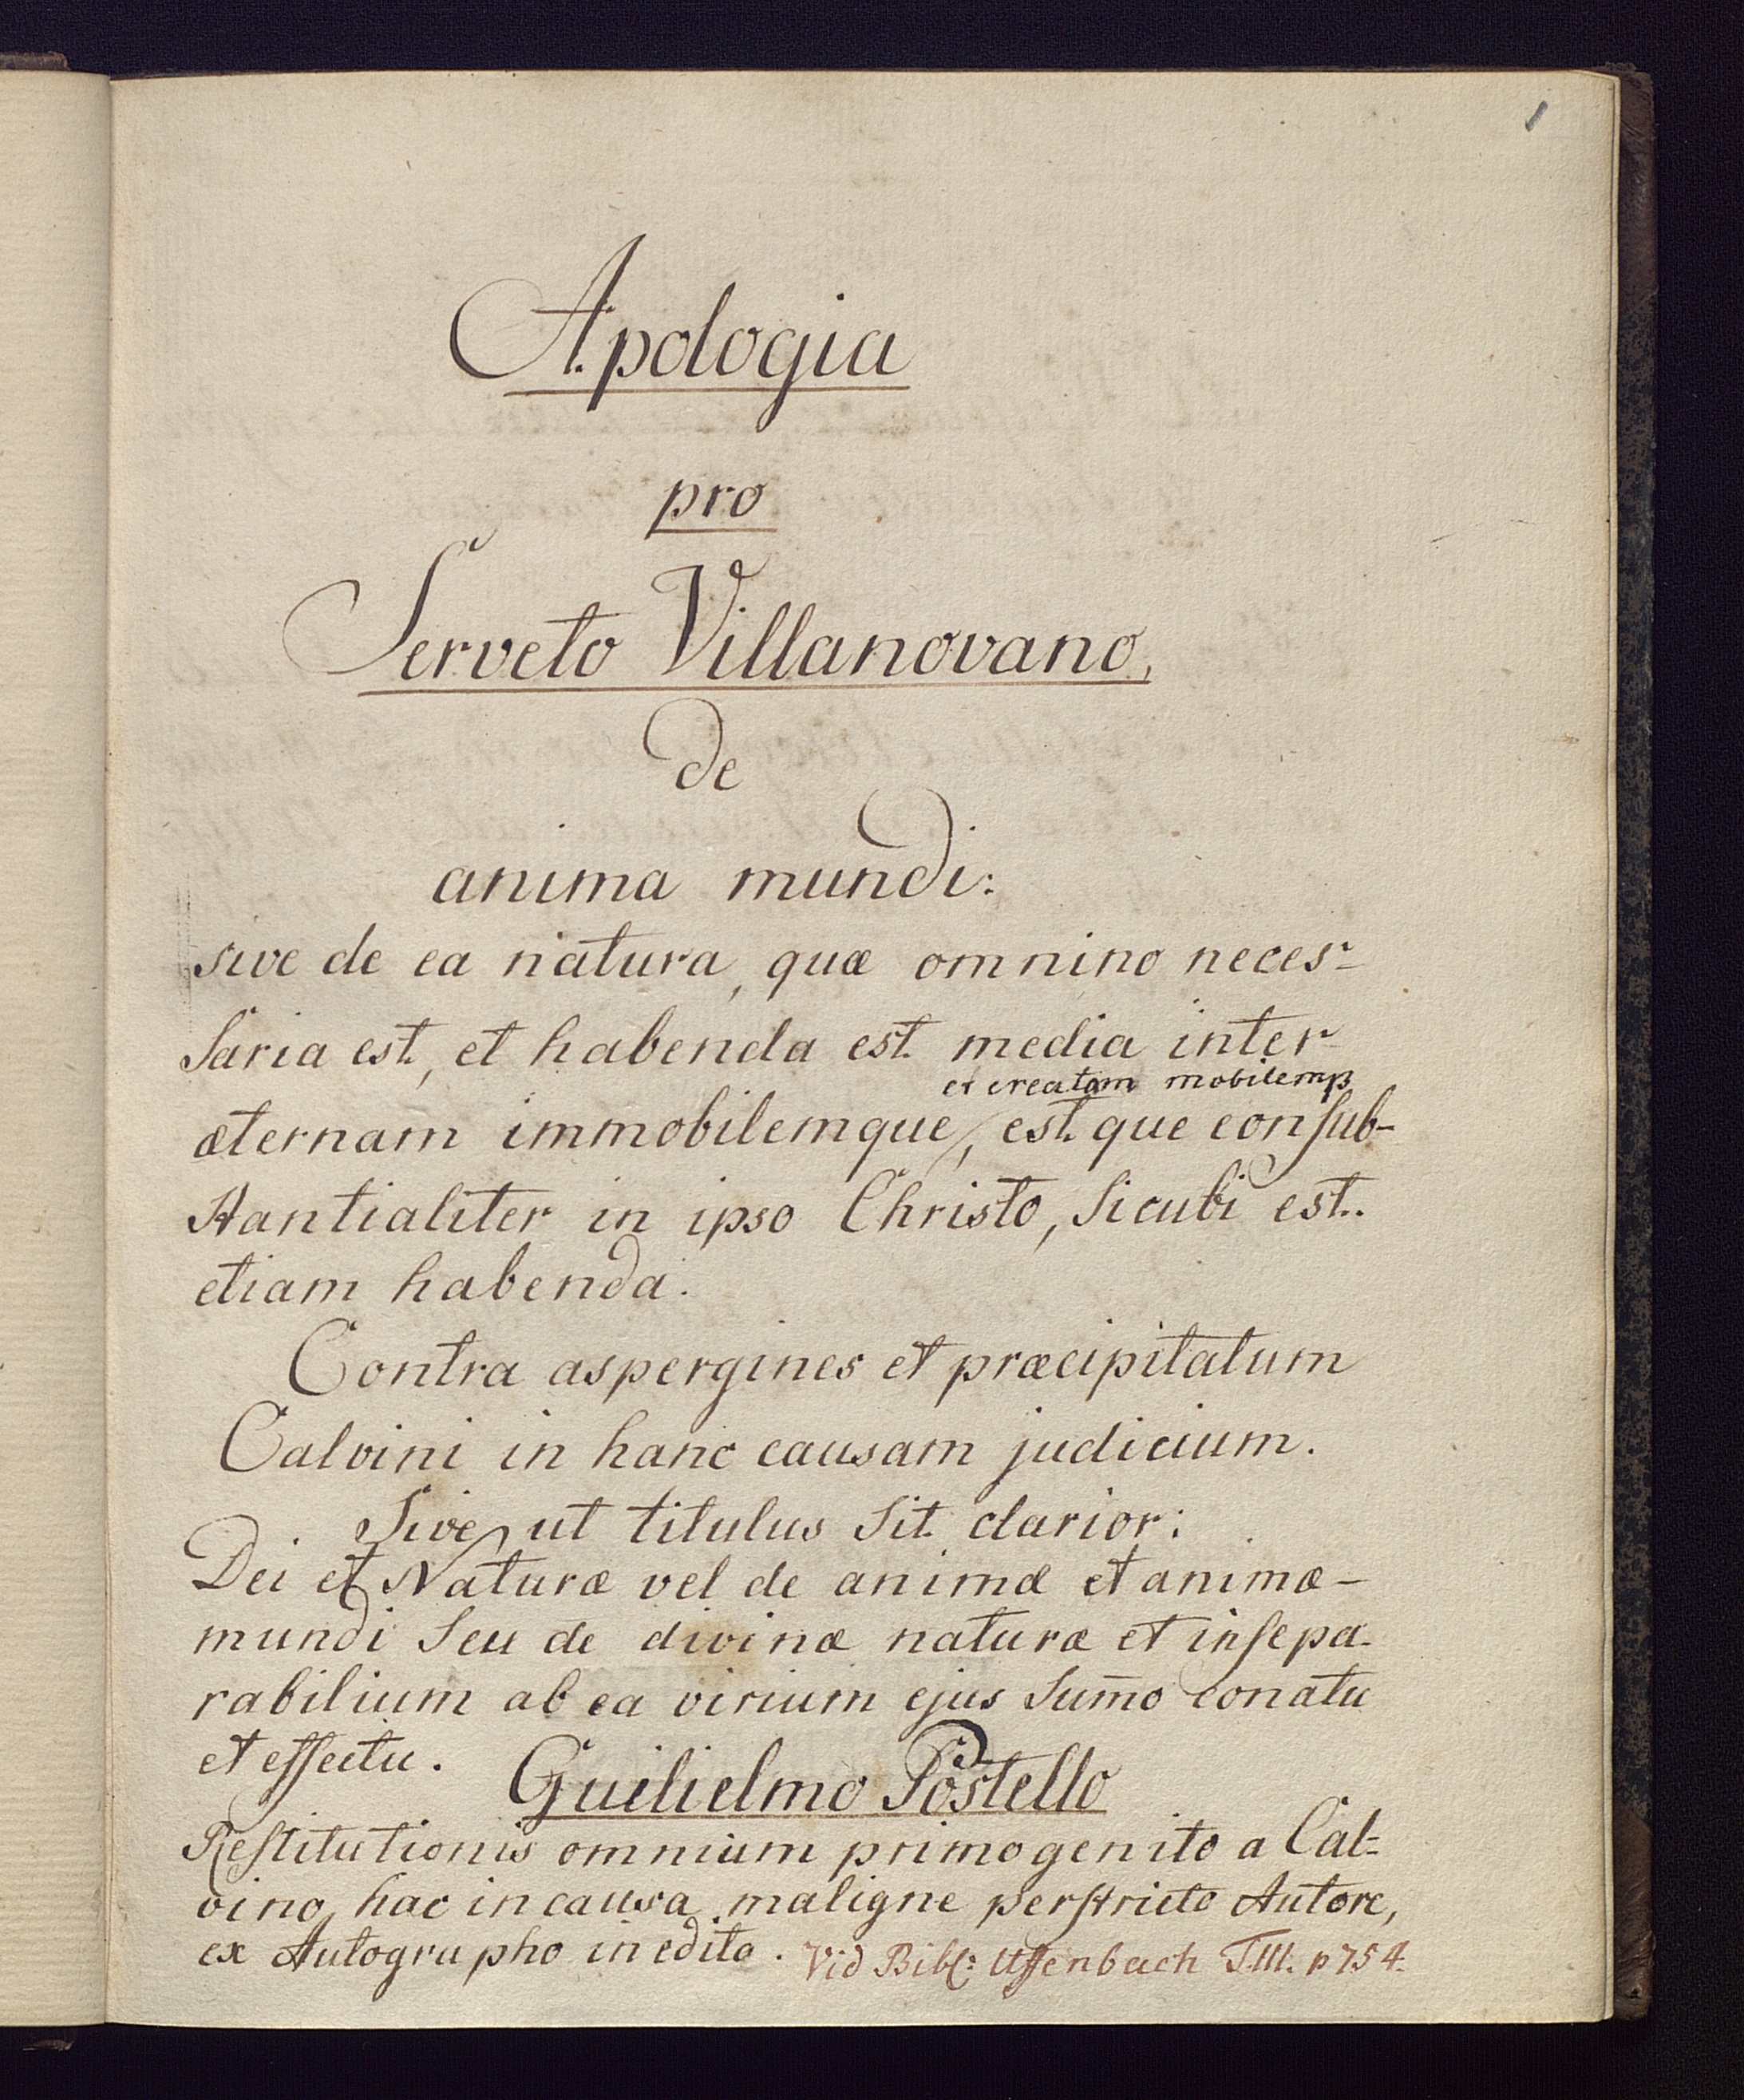 1
Apologia
pro
Serveto Villanovano,
de
anima mundi:
sive de ea natura, quæ omnino neces-
saria est, et habenda est media inter
et creatam mobilemq3
æternam immobilemque, est que consub-
stantialiter in ipso Christo, sicubi est
etiam habenda.
Contra aspergines et præcipitatum
Calvini in hanc causam judicium.
Sive, ut titulus sit clarior:
Dei et Naturæ vel de animæ et animæ-
mundi seu de divinæ naturæ et insepa-
rabilium ab ea virium ejus sum̄o conatu
et effectu.
Guilielmo Postello
Restitutionis omnium primogenito a Cal=
vino, hac in causa maligne perstricto Autore,
ex Autographo inedito. Vid Bibl: Uffenbach T.III. p 754.